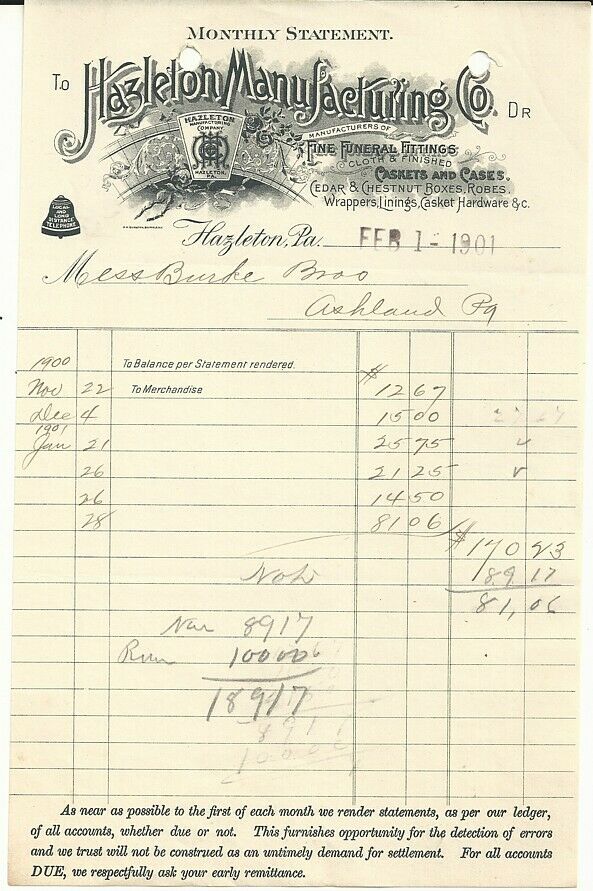 MONTHLY STATEMENT.
To Hazleton Manufacturing Co. DR
HAZLETON
MANUFACTURING
COMPANY
HAZLETON,
PA.
MANUFACTURERS OF
FINE FUNERAL FITTINGS
CLOTH & FINISHED
CASKETS AND CASES.
CEDAR & CHESTNUT BOXES, ROBES,
Wrappers, Linings, Casket Hardware &c.
LOCAL
AND
LONG
DISTANCE
TELEPHONE.
Hazleton, Pa. FEB 1 - 1901
Mess Burke Bros
Ashland Pa
1900 To Balance per Statement rendered. $
Nov 22 To Merchandise 12 67
Dec 4 15 00 27 67
1901
Jan 21 25 75 ✓
26 21 25 ✓
26 14 50
28 81 06
$170 23
89 17
81,06
89 17
100 00
189 17
89 17
100 00
As near as possible to the first of each month we render statements, as per our ledger,
of all accounts, whether due or not. This furnishes opportunity for the detection of errors
and we trust will not be construed as an untimely demand for settlement. For all accounts
DUE, we respectfully ask your early remittance.